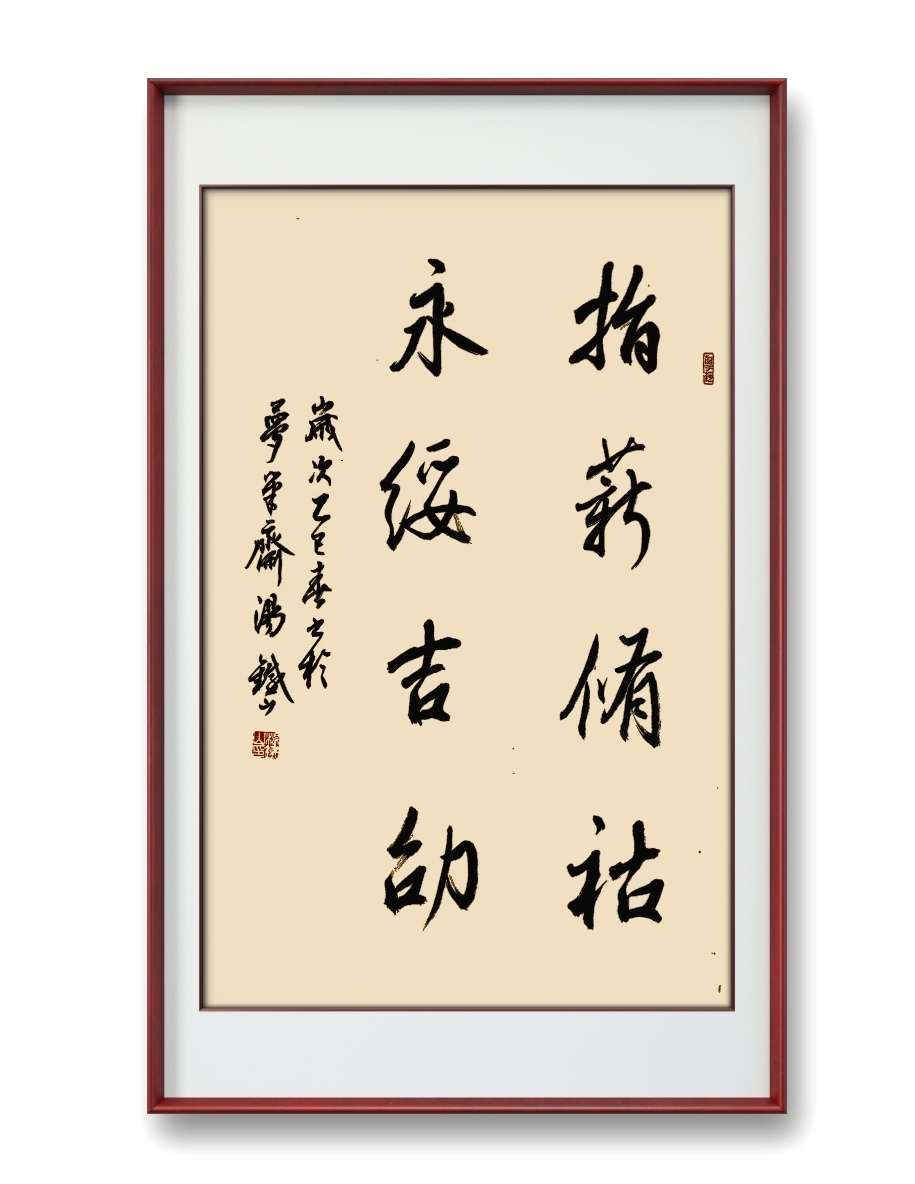 指薪脩祜
永綏吉劭
歲次乙巳春書於
夢筆齋湯鐵山